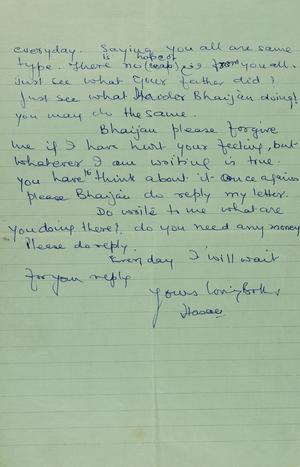 everyday. Saying you all are same
type. There is no hope of from you all.
Just see what your father did?
Just see what Haider Bhaijan doing?
you may do the same.
Bhaijan please forgive
me if I have hurt your feeling, but
whatever I am writing is true.
you have to think about it. Once again
please Bhaijan do reply my letter.
Do write to me what are
you doing there?, do you need any money
Please do reply.
Everyday I will wait
for your reply
Yours loving Broth